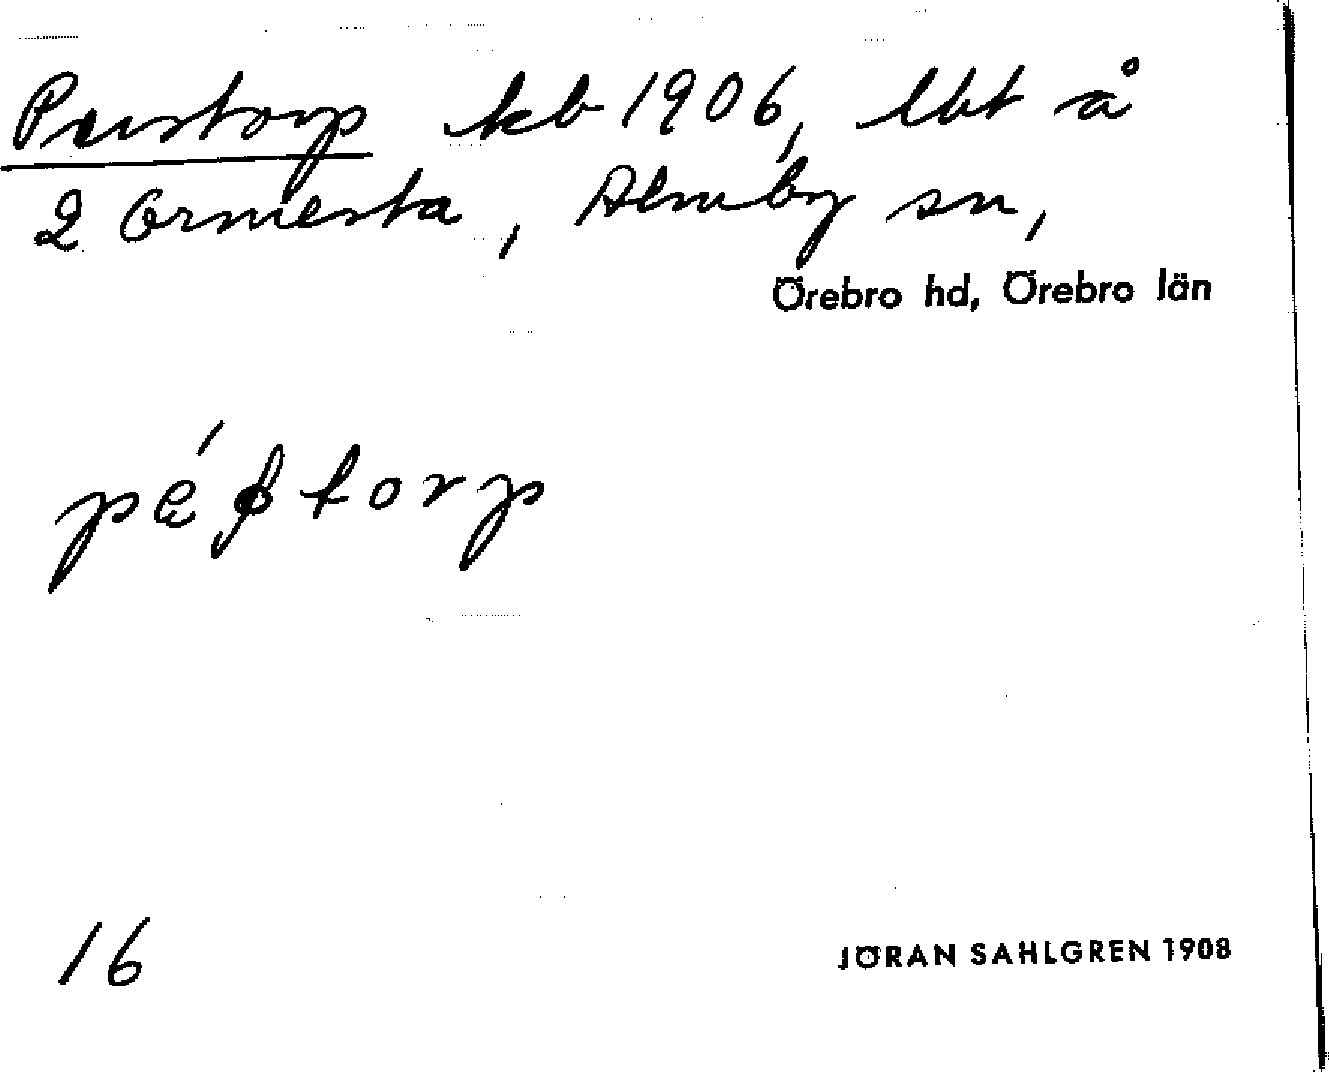 Perstorp kb 1906, lbt å
2 Ormesta, Almby sn,
Örebro hd, Örebro län
torp
16
JÖRAN SAHLGREN 1908